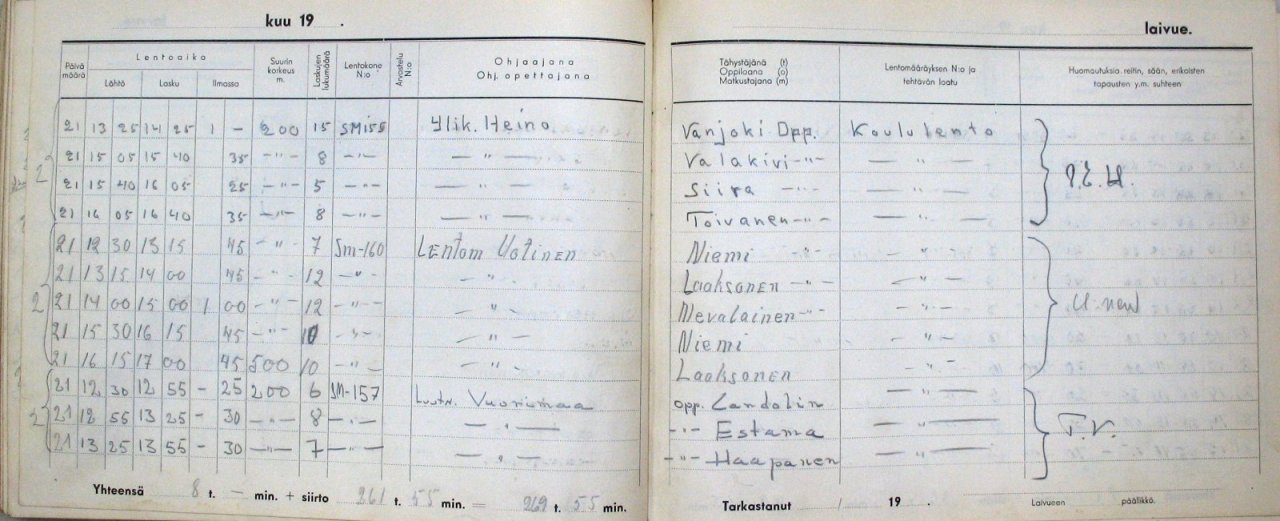 kuu 19 .
laivue.
Päivä määrä Lentoaika Suurin korkeus m. Laskujen lukumäärä Lentokone N:o Arvostelu N:o Ohjaajana Ohj. opettajana Tähystäjänä (t) Oppilaana (o) Matkustajana (m) Lentomääräyksen N:o ja tehtävän laatu Huomautuksia reitin, sään, erikoisten tapausten y.m. suhteen
Lähtö Lasku Ilmassa
21 13 25 14 25 1 – 200 15 SM155 Ylik. Heino Vanjoki Opp. Koululento
21 15 05 15 40 35 –"– 8 –"– –"– Valakivi –"– –"–
21 15 40 16 05 25 –"– 5 –"– –"– Siira –"– –"–
21 16 05 16 40 35 –"– 8 –"– –"– Toivanen –"– –"–
21 12 30 13 15 45 –"– 7 Sm-160 Lentom Uotinen Niemi –"– "
21 13 15 14 00 45 –"– 12 –"– –"– Laaksonen –"– –"–
2 21 14 00 15 00 1 00 –"– 12 –"– –"– Nevalainen –"– –"–
21 15 30 16 15 45 –"– 10 –"– –"– Niemi –"–
21 16 15 17 00 45 500 10 –"– –"– Laaksonen –"–
21 12 30 12 55 – 25 200 6 SM-157 Luutn. Vuorimaa opp. Landolin –"–
2 21 12 55 13 25 – 30 –"– 8 –"– –"– –"– Estama –"– T.V.
21 13 25 13 55 – 30 –"– 7 –"– –"– –"– Haapanen –"–
Yhteensä 8 t. – min. + siirto 261 t. 55 min. = 269 t. 55 min.
Tarkastanut / 19 . Laivueen päällikkö.